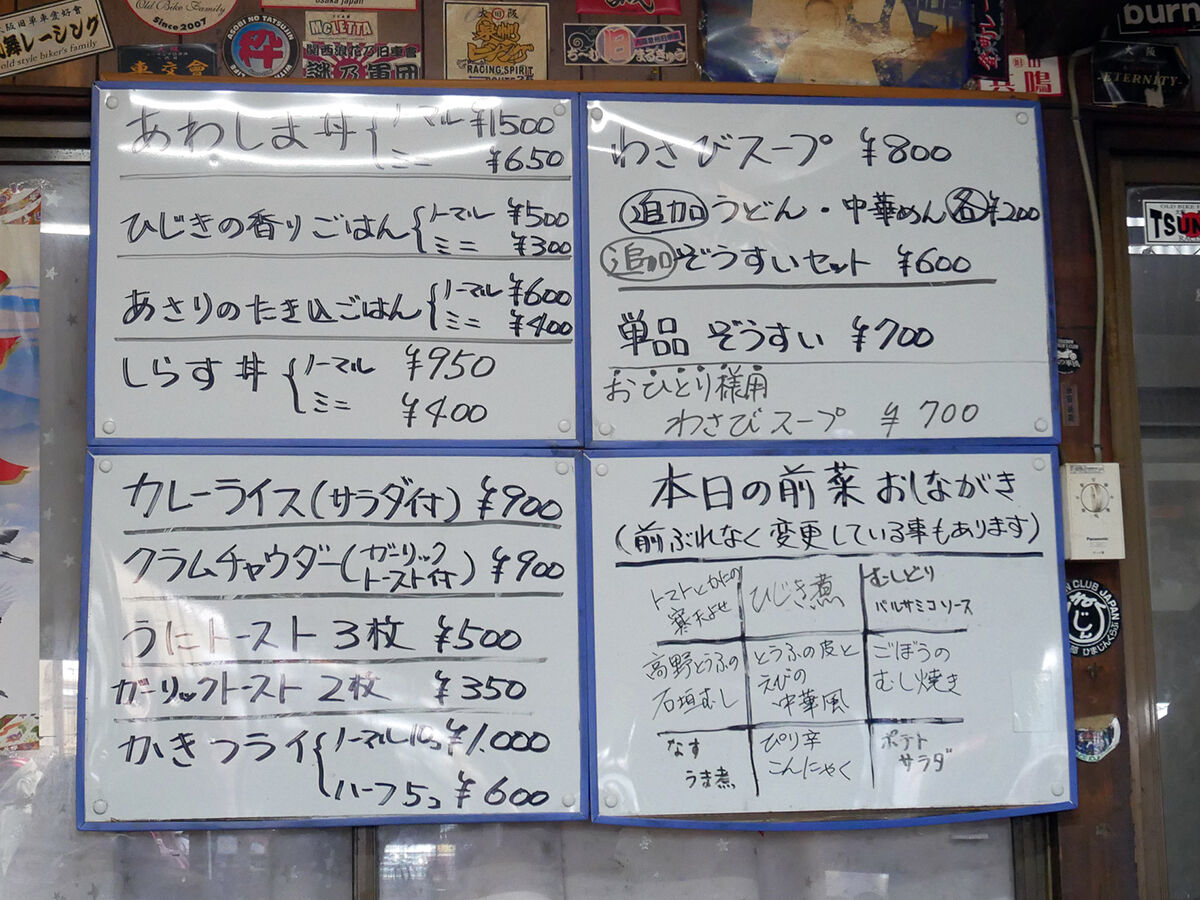 Old Bike Family
Since 2007
舞レーシング
old style biker's family
ASOBI NO TATSUJIN
粋
osaka japan
McLETTA
関西浪花乃旧車會
謎乃軍団
大阪
RACING SPIRIT
旧
burn
ETERNITY
あわしま丼 ノーマル ¥1500
ミニ ¥650
ひじきの香りごはん ノーマル ¥500
ミニ ¥300
あさりのたき込ごはん ノーマル ¥600
ミニ ¥400
しらす丼 ノーマル ¥950
ミニ ¥400
わさびスープ ¥800
追加 うどん・中華めん 各¥200
追加 ぞうすいセット ¥600
単品 ぞうすい ¥700
おひとり様用
わさびスープ ¥700
カレーライス(サラダ付) ¥900
クラムチャウダー(ガーリックトースト付) ¥900
うにトースト 3枚 ¥500
ガーリックトースト 2枚 ¥350
かきフライ ノーマル10コ ¥1.000
ハーフ5コ ¥600
本日の前菜 おしながき
(前ぶれなく変更している事もあります)
トマトとかにの
寒天よせ
ひじき煮
むしどり
バルサミコソース
高野とうふの
石垣むし
とうふの皮と
えびの
中華風
ごぼうの
むし焼き
なす
うま煮
ぴり辛
こんにゃく
ポテト
サラダ
Panasonic
CLUB JAPAN